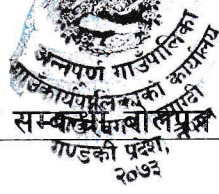 अन्नपूर्ण गाउँपालिका
गाउँ कार्यपालिकाको कार्यालय
सम्बन्धी बोलपत्र
गण्डकी प्रदेश,
२०७३